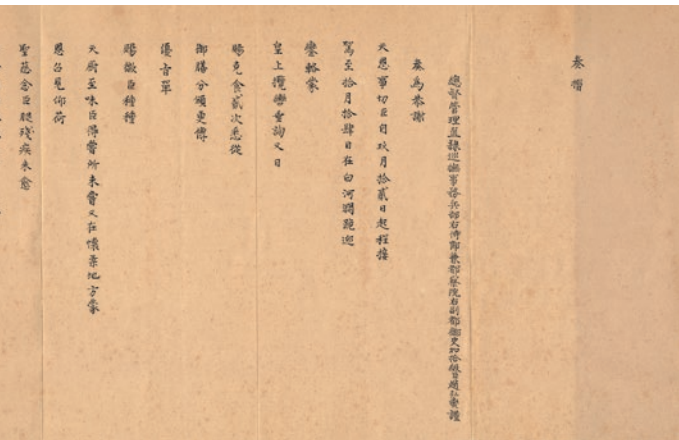 奏摺
總督管理直隸巡撫事務兵部右侍郎兼都察院右副都御史加拾級臣趙弘燮謹
奏為恭謝
天恩事切臣自玖月拾貳日起程接
駕至拾月拾肆日在白河澗跪迎
鑾輅蒙
皇上攬轡垂詢又日
賜克食貳次悉從
御膳分頒更傳
優旨單
賜微臣種種
天廚至味臣得嘗所未嘗又在懷柔地方蒙
恩召見仰荷
聖慈念臣腿殘疾未愈